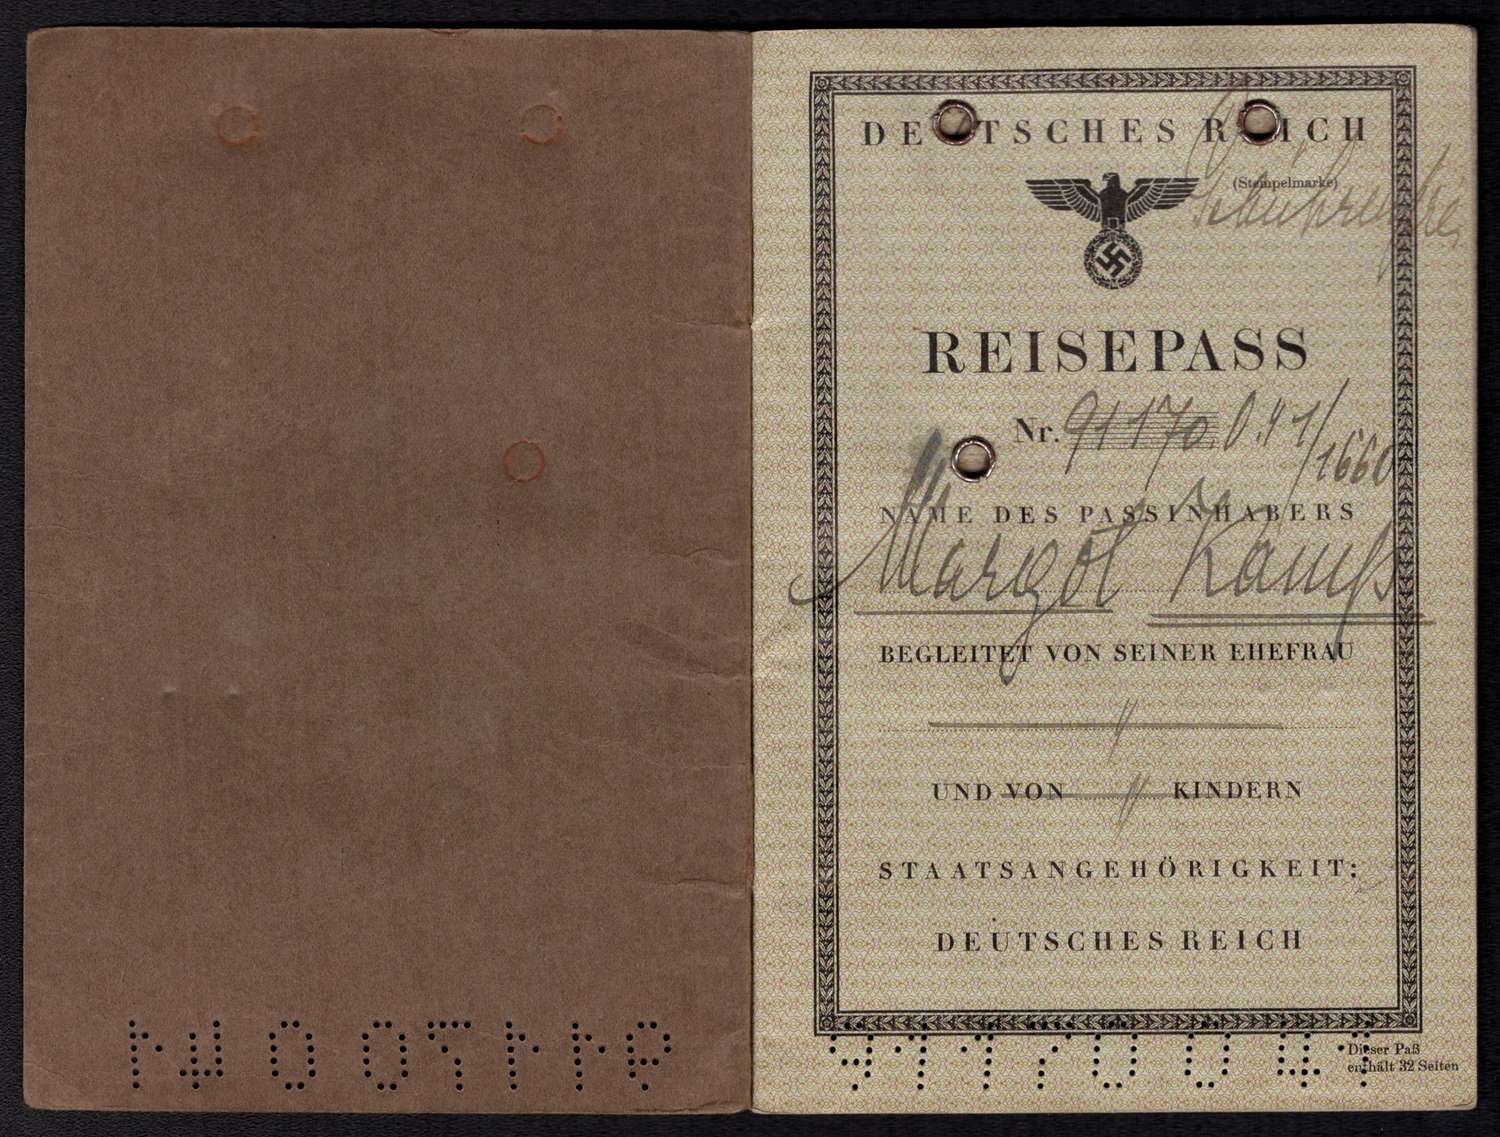 DEUTSCHES REICH
(Stempelmarke)
Gebührenfrei
REISEPASS
Nr. 91170 0.41/1660
NAME DES PASSINHABERS
Margot
BEGLEITET VON SEINER EHEFRAU
UND VON KINDERN
STAATSANGEHÖRIGKEIT:
DEUTSCHES REICH
91170041
Dieser Paß
enthält 32 Seiten